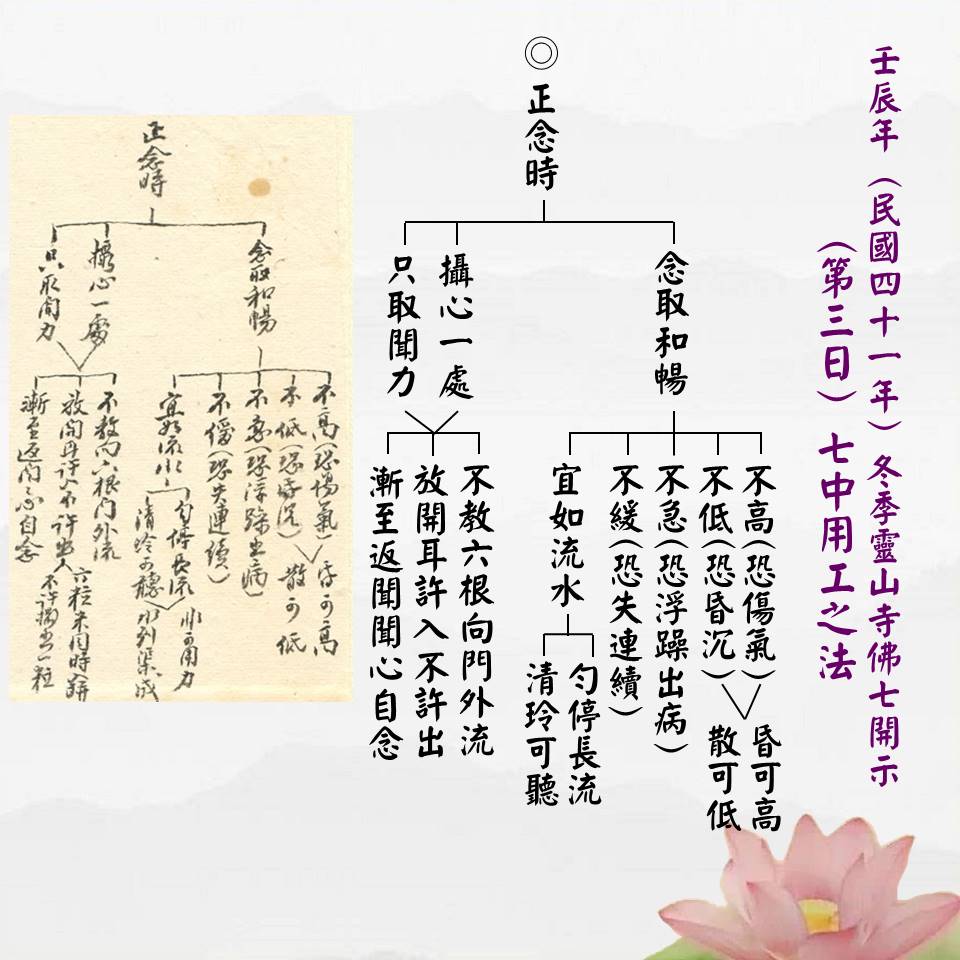 壬辰年（民國四十一年）冬季靈山寺佛七開示
（第三日）七中用工之法
◎正念時
念取和暢
攝心一處
只取聞力
不高（恐傷氣）
不低（恐昏沉）
不急（恐浮躁出病）
不緩（恐失連續）
宜如流水
昏可高
散可低
勻停長流
清玲可聽
不教六根向門外流
放開耳許入不許出
漸至返聞聞心自念
正念時
念取和暢
攝心一處
只取聞力
不高（恐傷氣）
不低（恐昏沉）
不急（恐浮躁出病）
不緩（恐失連續）
宜如流水
昏可高
散可低
勻停長流
清冷可聽
非用力
水到渠成
不教向六根門外流
放開耳許入不許出
漸至返聞心自念
六粒米同時
不許漏出一粒